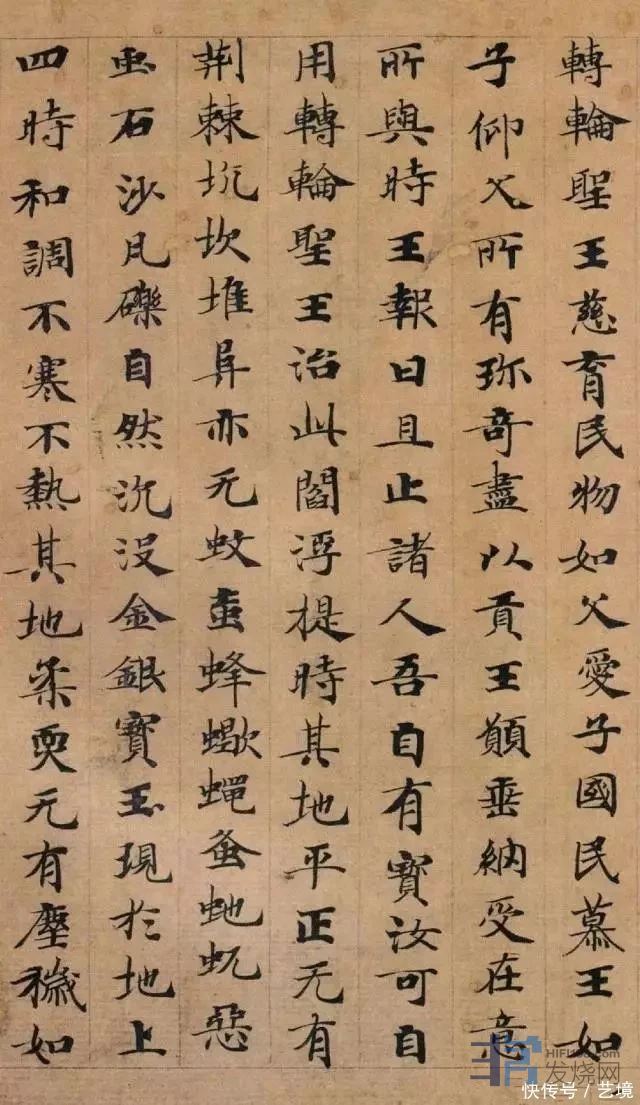 轉輪聖王慈育民物如父愛子國民慕王如
子仰父所有珎奇盡以貢王願垂納受在意
所與時王報曰且止諸人吾自有寶汝可自
用轉輪聖王治此閻浮提時其地平正无有
荆棘坑坎堆阜亦无蚊䖟蜂蠍蠅蚤虵蚖惡
虫石沙瓦礫自然沉没金銀寶玉現於地上
四時和調不寒不熱其地柔耎无有塵穢如
发烧网
快传号 / 艺境